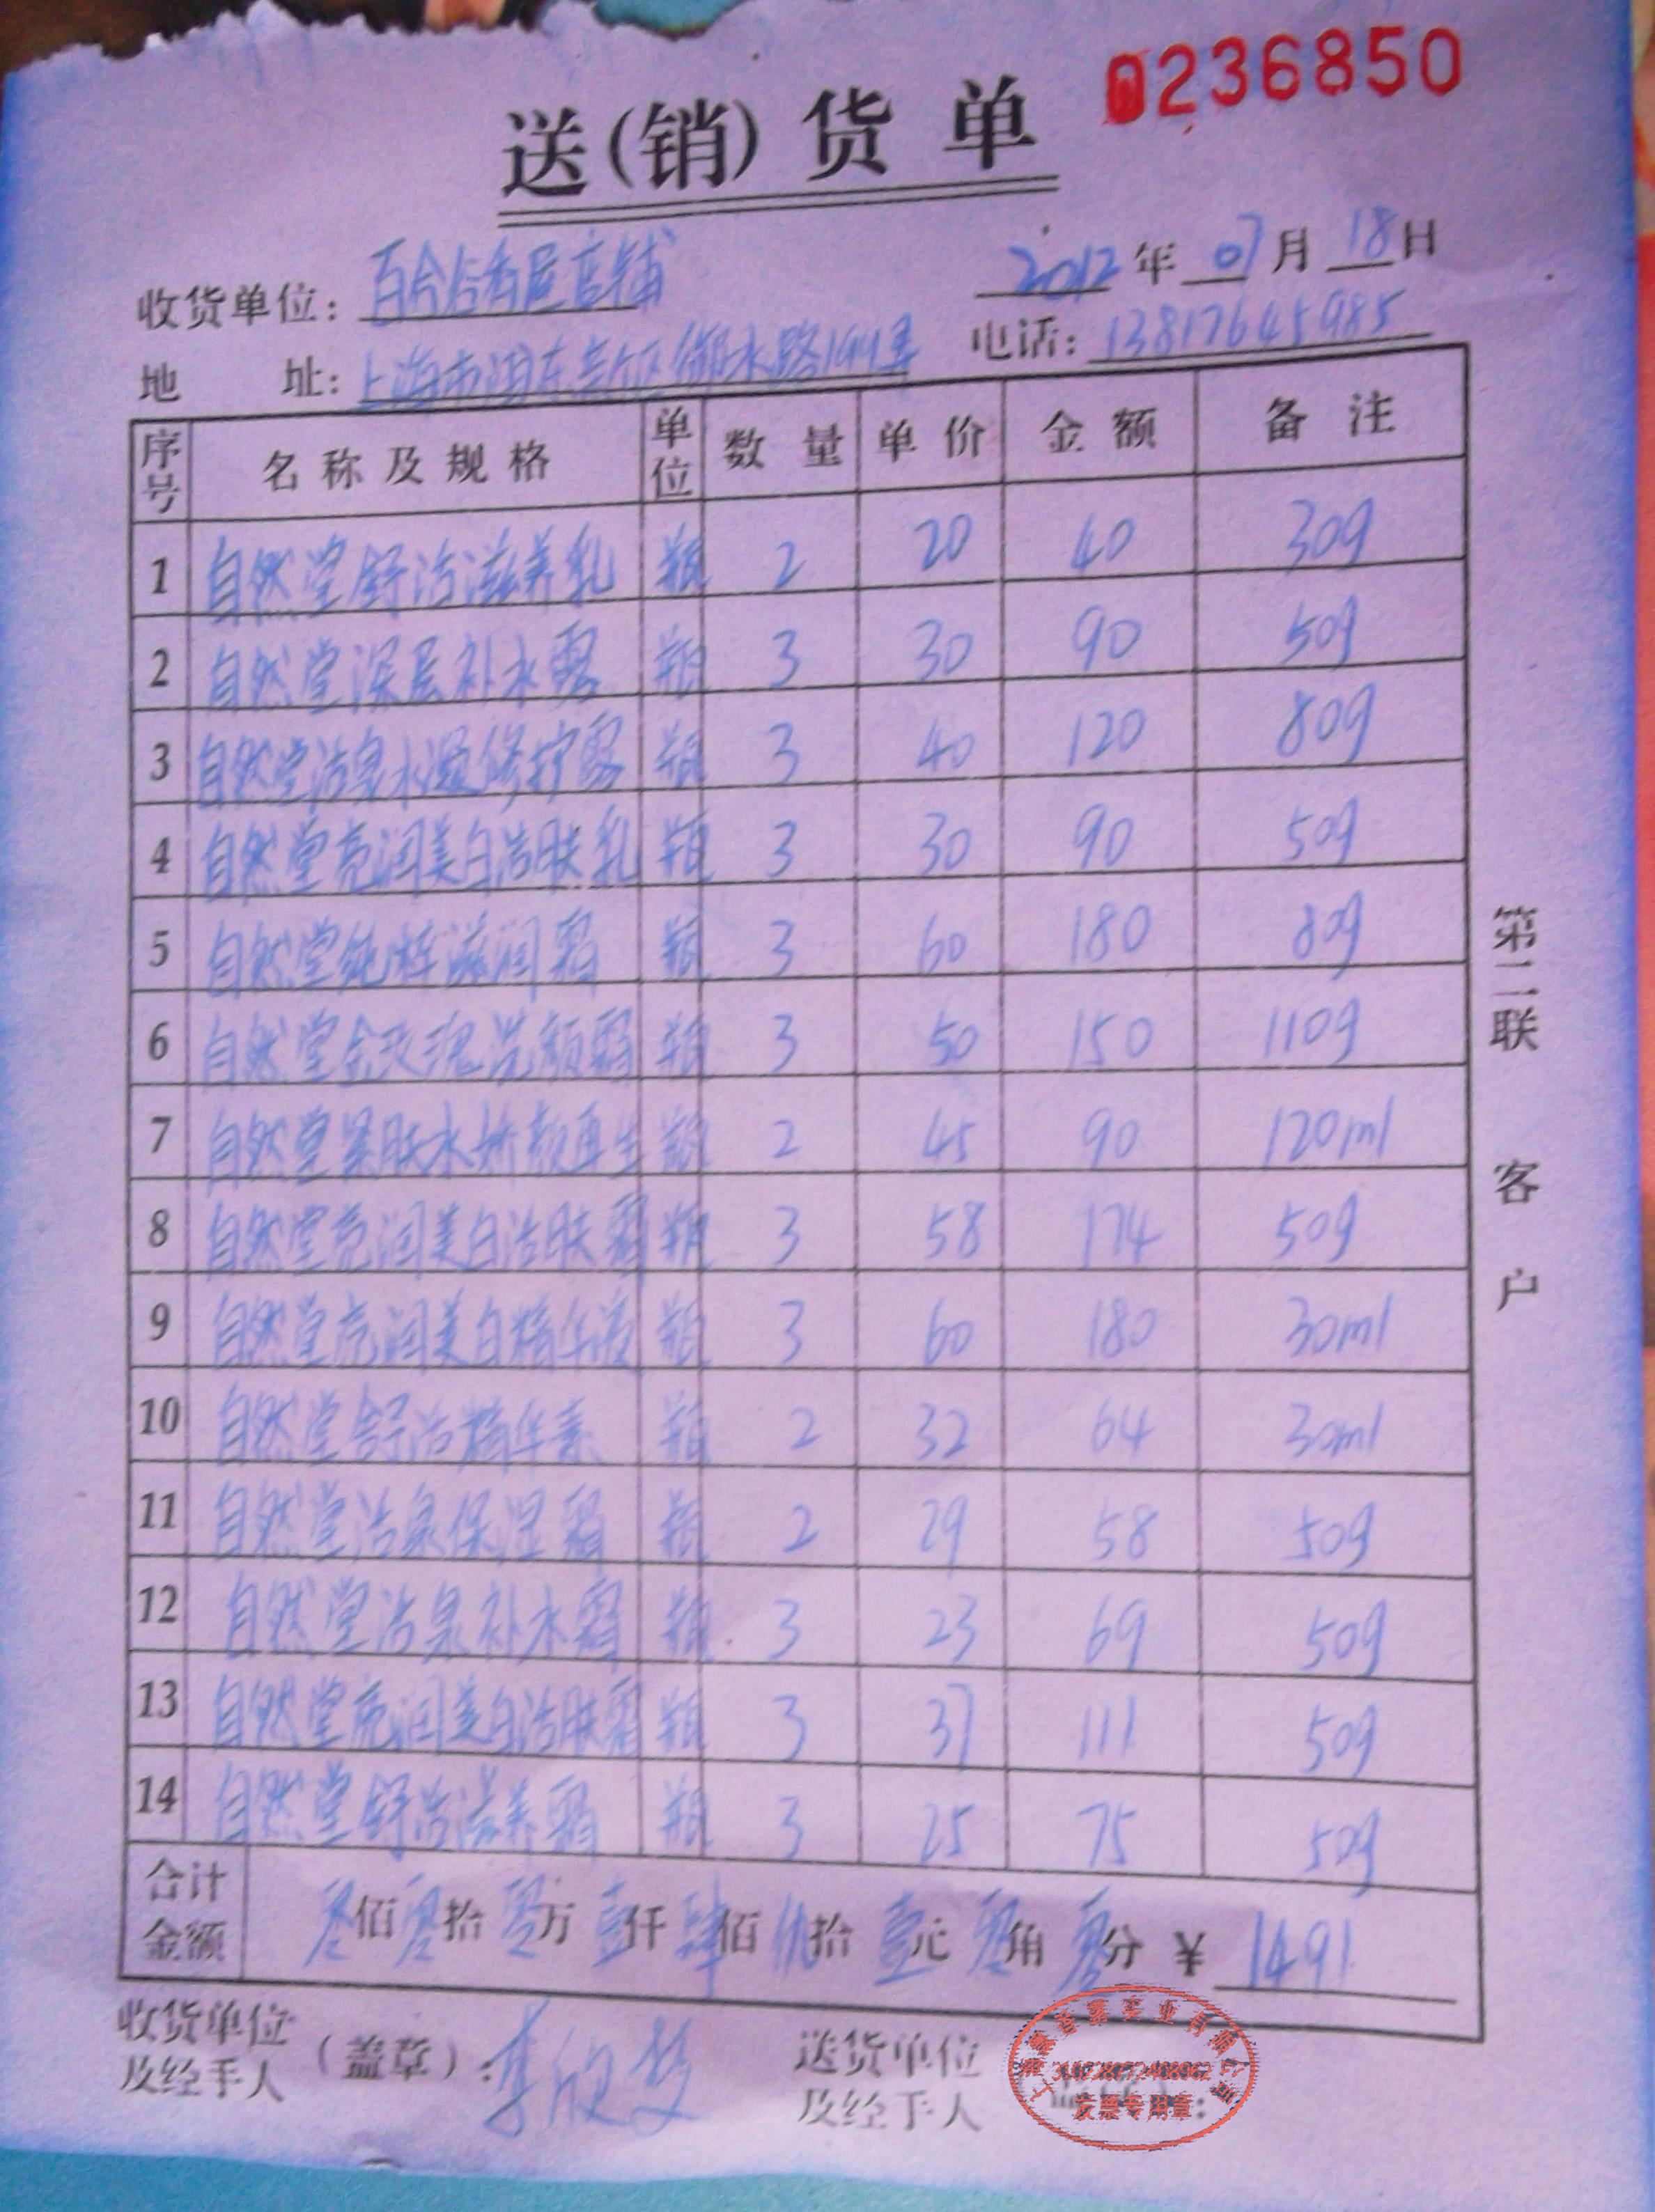 0236850
送(销)货单
2012年07月18日
收货单位:百合沾香屋店铺
地 址:上海市浦东新区御水路199弄 电话:13817645985
序号 名称及规格 单位 数量 单价 金额 备注
1 自然堂舒活滋养乳 瓶 2 20 40 30g
2 自然堂深层补水露 瓶 3 30 90 50g
3 自然堂活泉水凝修护露 瓶 3 40 120 80g
4 自然堂亮润美白活肤乳 瓶 3 30 90 50g
5 自然堂纯粹滋润霜 瓶 3 60 180 80g
6 自然堂金玫瑰洗颜霜 瓶 3 50 150 110g
7 自然堂紧肤水娇颜再生 瓶 2 45 90 120ml
8 自然堂亮润美白活肤霜 瓶 3 58 174 50g
9 自然堂亮润美白精华液 瓶 3 60 180 30ml
10 自然堂舒活精华素 瓶 2 32 64 30ml
11 自然堂活泉保湿霜 瓶 2 29 58 50g
12 自然堂活泉补水霜 瓶 3 23 69 50g
13 自然堂亮润美白活肤霜 瓶 3 37 111 50g
14 自然堂舒活滋养霜 瓶 3 25 75 50g
合计金额 零佰零拾零万壹仟肆佰玖拾壹元零角零分 ¥1491
收货单位及经手人(盖章): 送货单位及经手人
发票专用章
第二联 客户